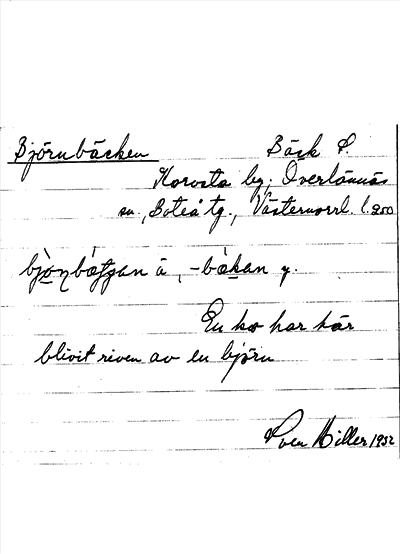 Björnbäcken Bäck P.
Norvsta by, Överlännäs
sn., Boteå tg., Västernorrl. l. 200
bjo̱ŋbæ̀ʃʃan ä, -bàkan y.
En ko har här
blivit riven av en björn
Sven Hiller 1952